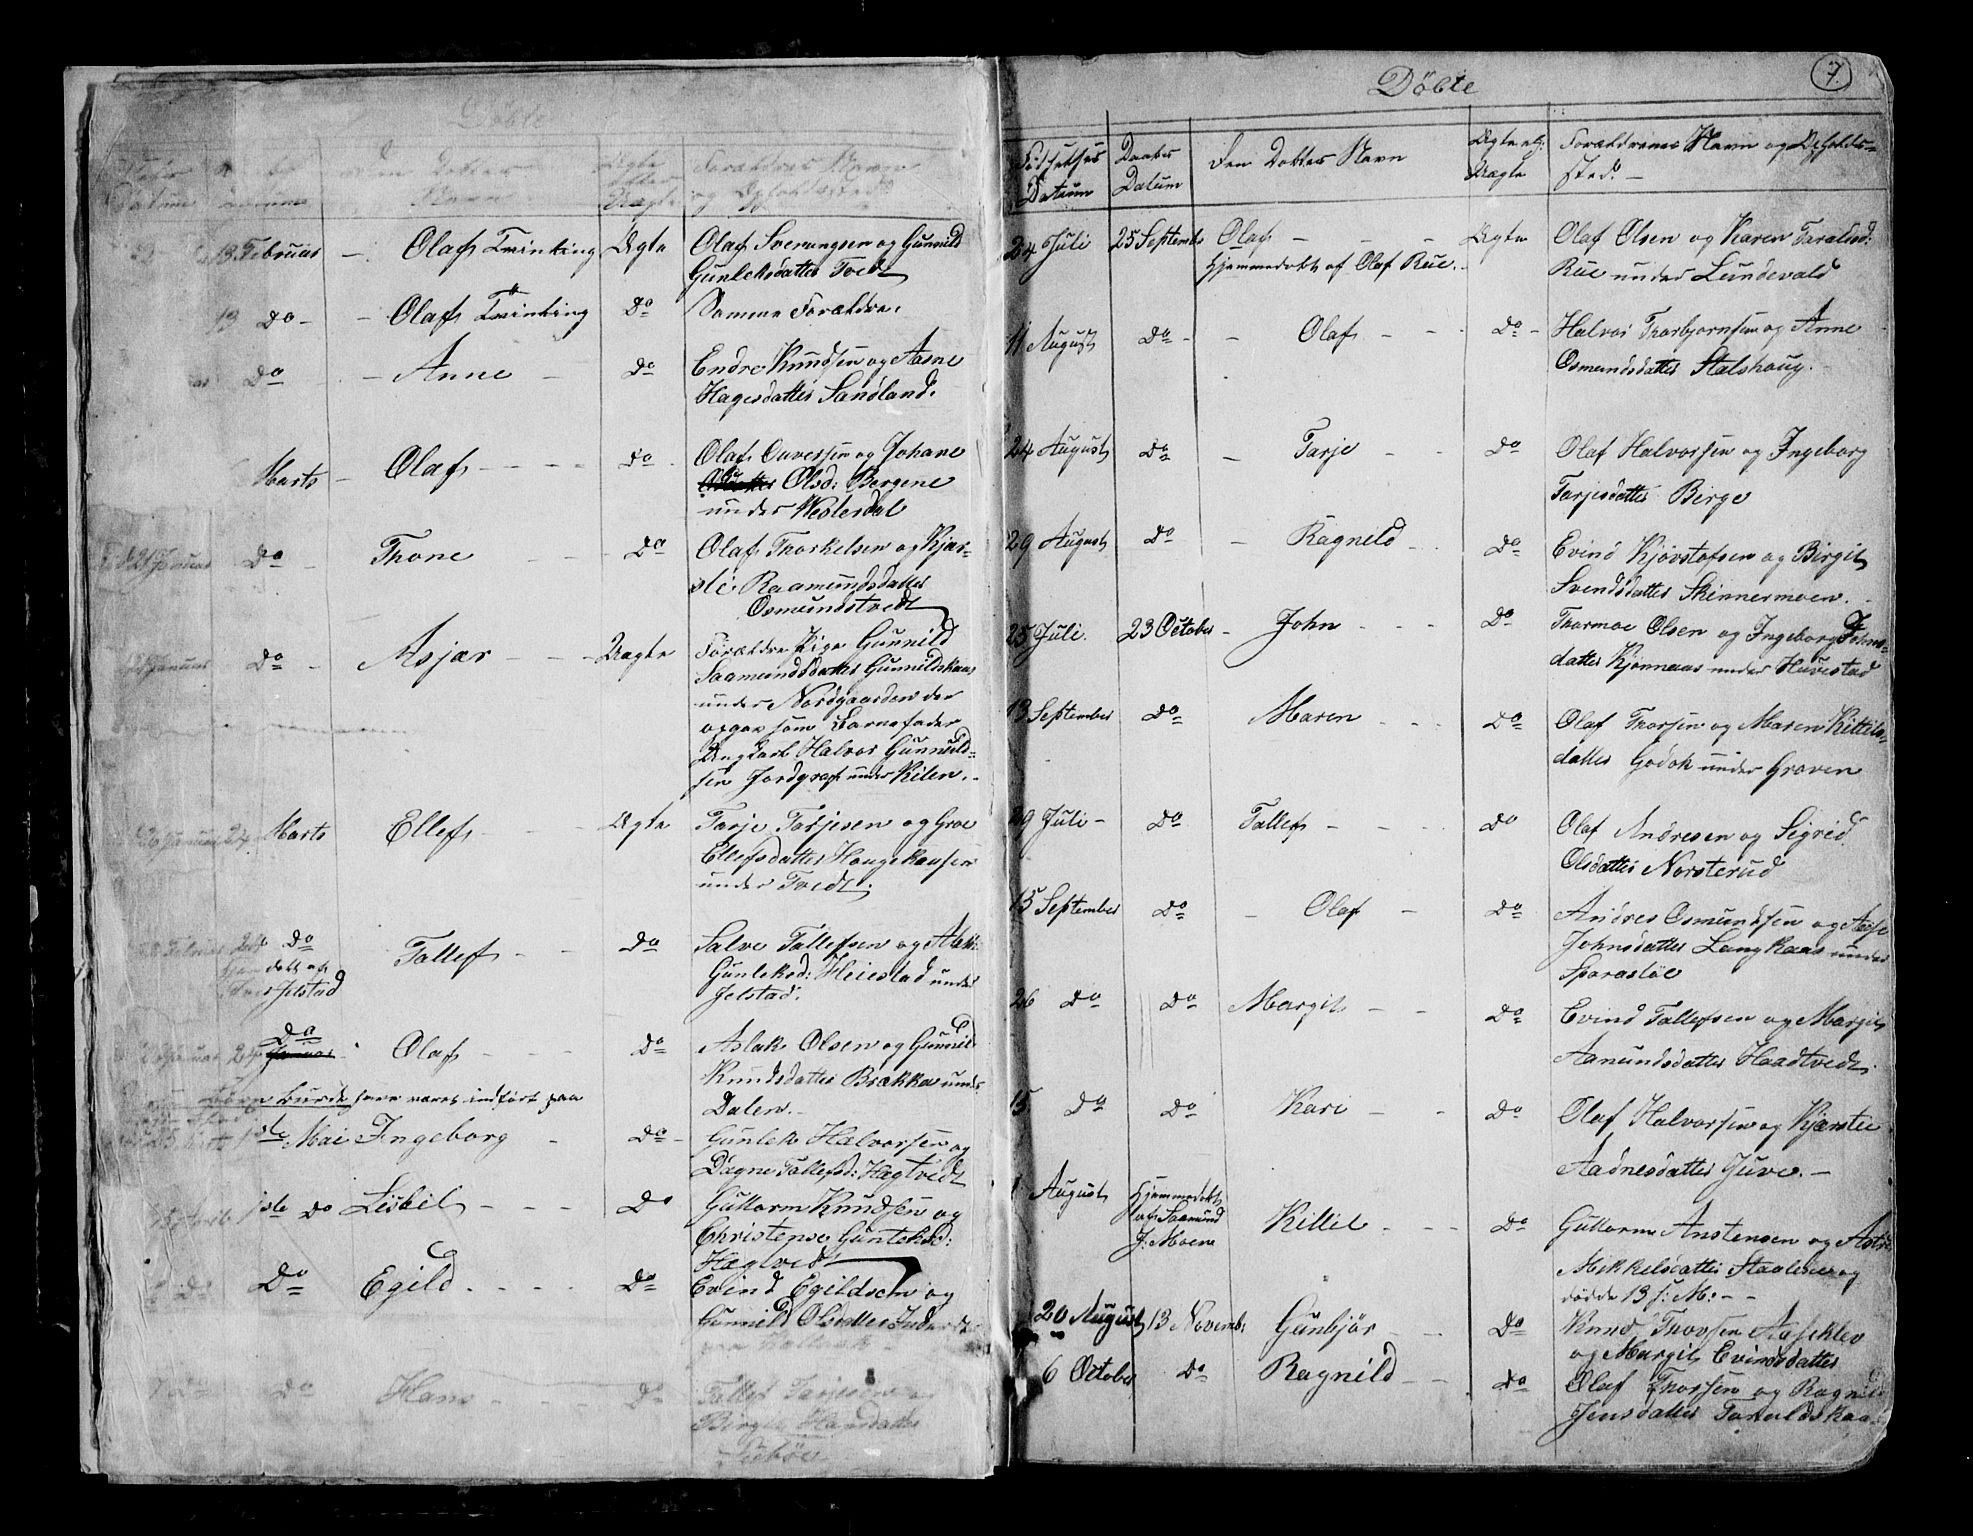 Döbte
Den Döbtes
Navn
Ægte
eller
Uægte
Forældres Navn
og Opholdssted
13 Februar - Olaf Tvinling Ægte Olaf Sverungsen og Gunnild
Gunleksdatter Tvedt
13 Do - Olaf Tvinling Do Samme Forældre.
Do - Anne - Do Endre Knudsen og Aasne
Hagesdatter Sandland.
Marts - Olaf - - - - Do Olaf Ouversen og Johane
Olsd: Bergene
under Westerdal
21 Januar Do - Thone - - Do Olaf Thorkelsen og Kjær-
stie Raamundsdatter
Osmundstvedt
Januar Do - Asjær - - - Uægte Forældre Pige Gunnild
Saamundsdatter Gunnildskaas
under Nordgaarden der
opgav som Barnefader
Ungkarl Halvor Gunnuld-
sen Jordgraf under Kilen. -
20 Januar 24 Marts Ellef - - - Ægte Tarje Tarjesen og Groe
Ellefsdatter Haugekaasen
under Tvedt.
Februar 24 Do
Hjemdøbt af
Jelstad
Tallef - - - Do Salve Tallefsen og Aslau:
Gunleksd: Heiestad under
Jelstad.
Januar 24 Do Olaf - - - Do Aslak Olsen og Gunnild
Knudsdatter Brækkas under
Dalen. -
Börn burde have været indfört paa
1ste Mai Ingeborg - Do - Gunlek Halvorsen og
Dagne Tallefsd: Hægtvedt
15 April 1ste Do Lisbil - - - - Do Guttorm Knudsen og
Christense Gunleksd:
Hægtvedt
Do Do Egild - - - - Do Evind Egildsen og
Gunnild Olsdatter
Do Do Hans - - - - Do Tallef Tarjesen og
Birgit Hansdatter
7.
Döbte
Födselses
Datum
Daabes
Datum
Den Döbtes Navn
Ægte ell:
Uægte
Forældrenes Navn og Opholds-
sted. -
24 Juli 25 September Olaf - - - Ægte Olaf Olsen og Karen Taraldsd:
Hjemmedøbt af Olaf Rue. Rue under Lundevald
11 August Do - - Olaf - - Do - Halvor Thorbjornsen og Anne
Osmundsdatter Stalshoug.
24 August Do - Tarje - - Do Olaf Halvorsen og Ingeborg
Tarjesdatter Birge
29 August Do - Ragnild - - Do Evind Kjøvstofsen og Birgit
Svendsdatter Skinnermoen.
25 Juli. 23 October - John - - - Do Thormoe Olsen og Ingeborg Johns-
datter Kjønnaas under Huvestad
13 September Do Maren - - - Do Olaf Thorsen og Maren Kittils-
datter Godok under Groven
29 Juli - Do Tallef - - - Do Olaf Andresen og Sigrid
Olsdatter Norsterud
15 September Do - Olaf - Do Andres Osmundsen og Aase
Johnsdatter Langkaas under
Sparasløe
26 Do Do Margit - - Do Evind Tallefsen og Margit
Aamundsdatter Haadtvedt.
15 Do Do Kari - - Do Olaf Halvorsen og Kjærstie
Aadnesdatter Juve. -
August Hjemmedøbt
af Saamund
J: Moene
Kittil - - - Do Guttorm Anstensen og Astri
Mikkelsdatter Staalene og
døde 13 s: M: - -
20 August 13 Novemb: Gunbjør - - Do Knud Thovsen Aaseklev
og Margit Evindsdatter
6 October Do Ragnild - - Do Olaf Thorsen og Ragnild
Jensdatter Taraldskaas